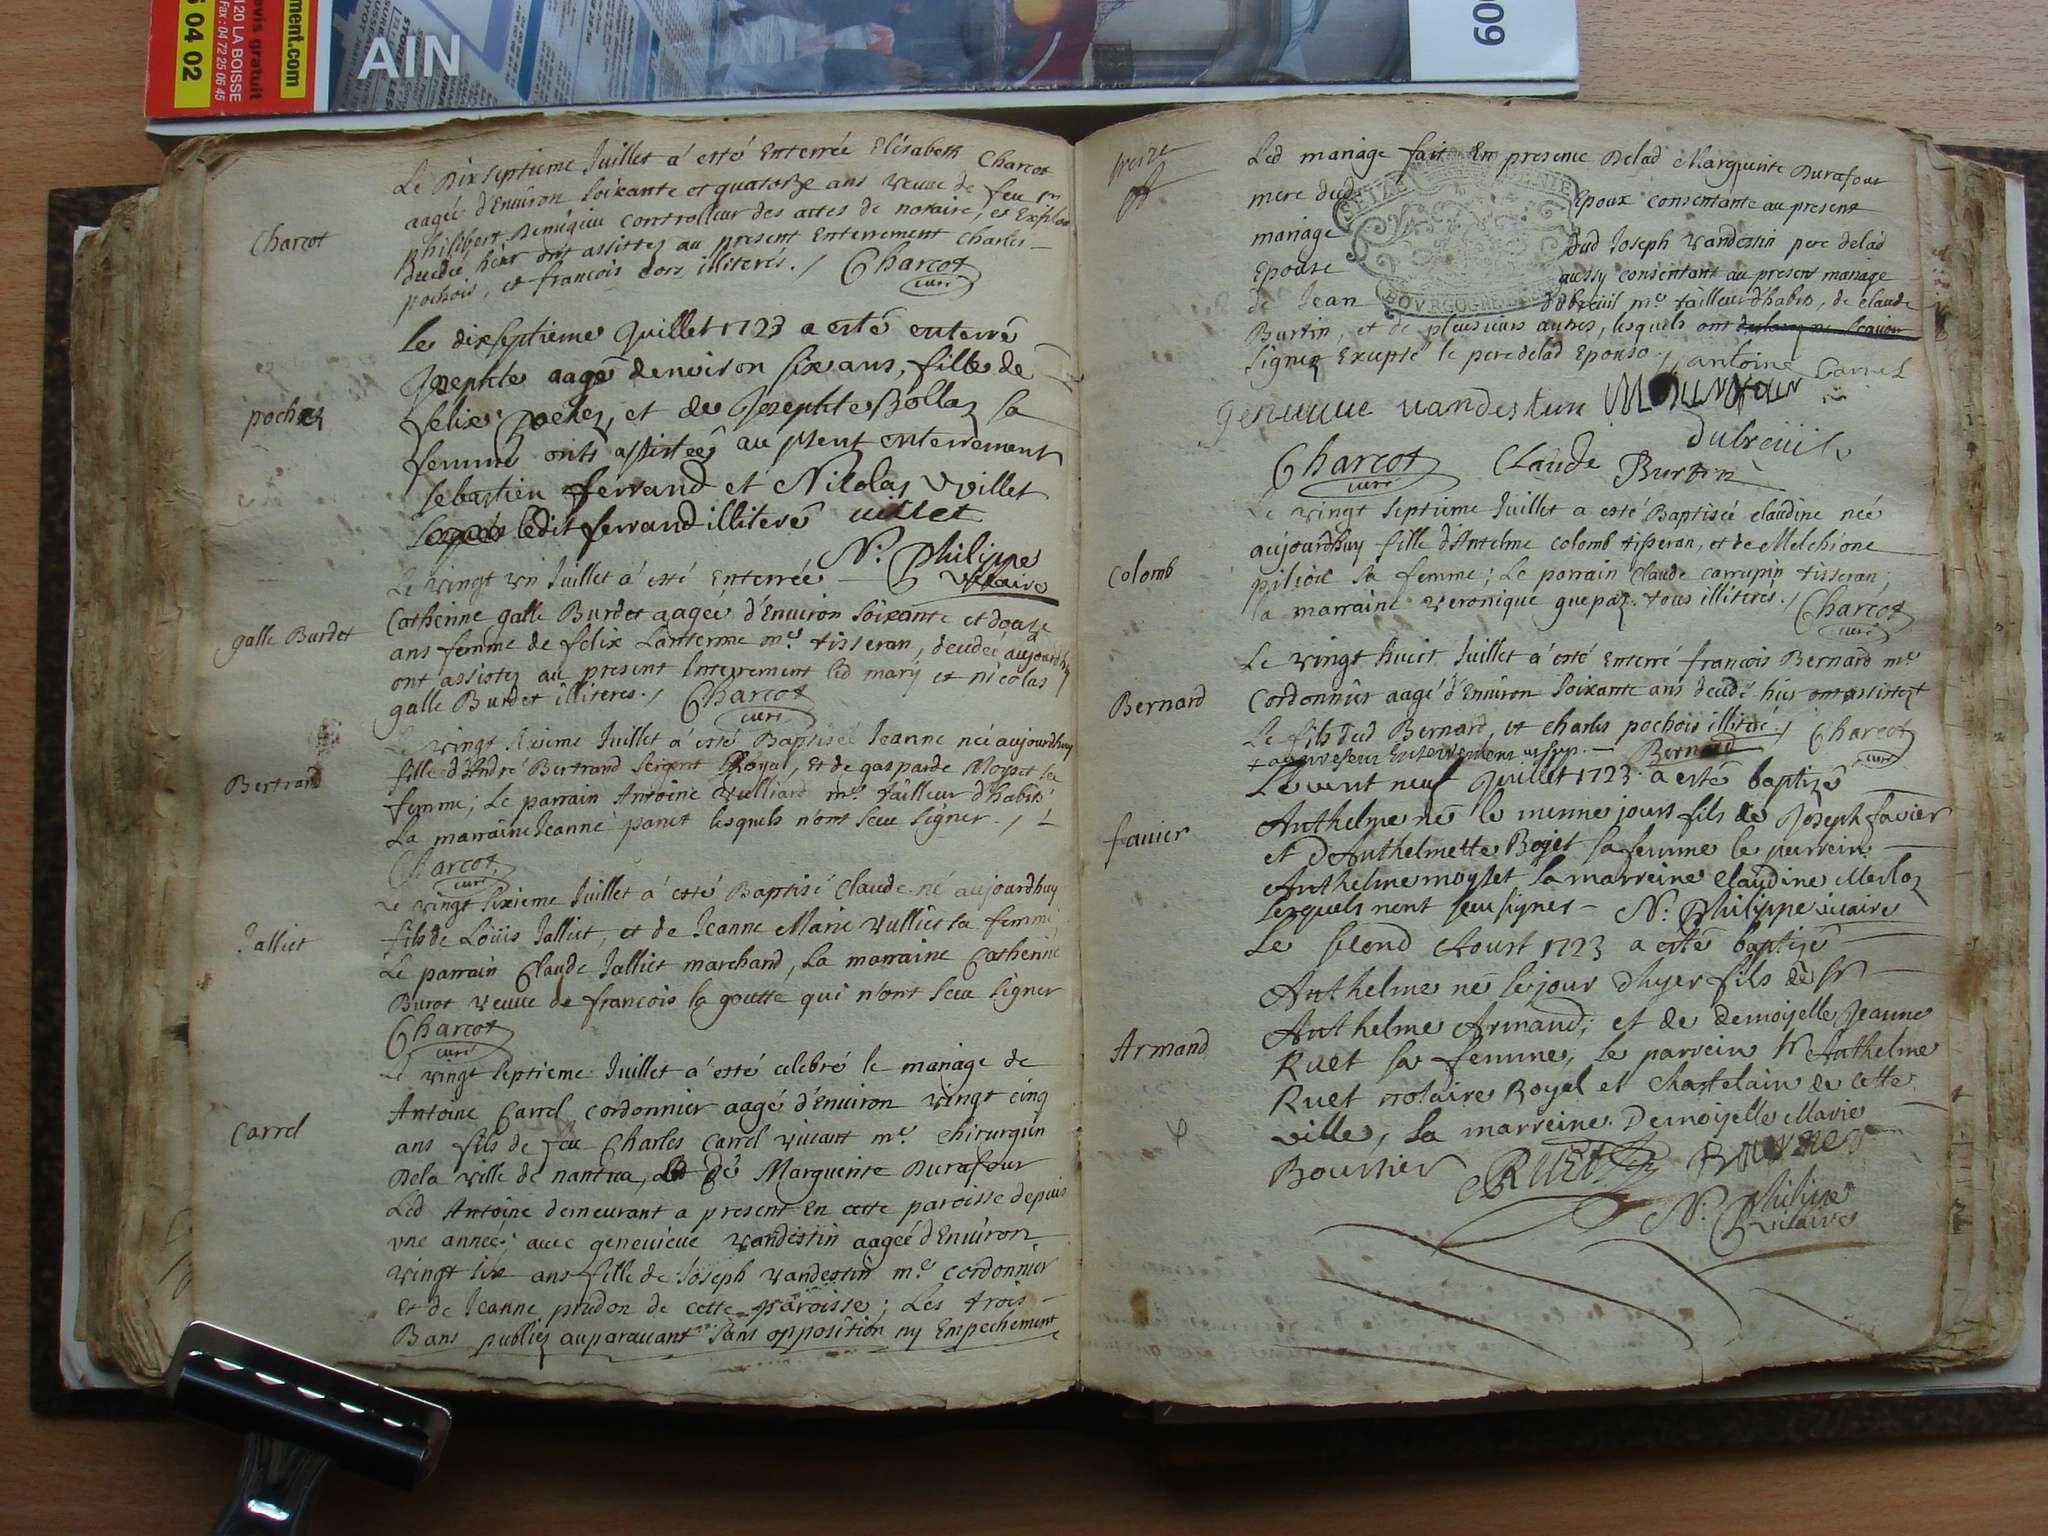 AIN
ment.com
evis gratuit
120 LA BOISSE
Fax : 04 72 25 06 45
04 02
009
Le Dixseptieme Juillet a esté Enterrée Elisabeth Charcot
aagée d'Environ soixante et quatorze ans veuve de feu
philibert controlleur des actes de notaire, et Exploits
decedée hier ont assistez au present Enterrement Charles
pochois, et francois illiteres. / Charcot
curé
Charcot
le dixseptieme Juillet 1723 a esté enterré
Josephte aagée denviron six ans, fille de
felix pochez, et de Josephte Bollaz sa
femme onts assistées au pnt enterrement
sebastien ferrand et Nicolas Vvillet
ledit ferrand illiteré villet
N: Philippe
vicaire
pochez
Le vingt vn Juillet a esté Enterrée
Catherine galle Burdet aagée d'Environ soixante et douze
ans femme de felix Lanterme me tisseran, decedée aujourdhuy
ont assistez au present Enterrement led mary et nicolas
galle Burdet illiteres. / Charcot
curé
galle Burdet
Le vingt sixieme Juillet a esté Baptisée Jeanne née aujourdhuy
fille d'André Bertrand sergent Royal, et de gasparde Moyset sa
femme; Le parrain Antoine Vulliard me tailleur d'habits
La marraine Jeanne panet lesquels n'ont sceu signer. /
Charcot
curé
Bertrand
Le vingt sixieme Juillet a esté Baptisé Claude né aujourdhuy
fils de Loüis Jalliet, et de Jeanne Marie Vulliet sa femme
Le parrain Claude Jalliet marchand, La marraine Catherine
Burot veuve de francois la goutte qui n'ont sceu signer
Charcot
curé
Jalliet
Le vingt septieme Juillet a esté celebré le mariage de
Antoine Carrel cordonnier aagé d'Environ vingt cinq
ans fils de feu Charles Carrel vivant me chirurgien
Dela ville de nantua, et de Marguerite Durafour
Led Antoine demeurant a present En cette paroisse depuis
vne année; avec genevieve vandestin aagée d'Environ
vingt six ans fille de Joseph vandestin me cordonnier
et de Jeanne prudon de cette paroisse; Les trois
Bans publiez auparavant sans opposition ny Empechement
Carrel
treize
Led mariage fait En presence Delad Marguerite Durafour
mere dud Epoux consentante au present
mariage dud Joseph vandestin pere delad
Epouse aussy consentant au present mariage
de Jean Dubreüil me tailleur d'habits, de claude
Burtin, et de plusieurs autres, lesquels ont
signez Excepté le pere delad Epouse. / antoine Carrel
genevieve vandestin
dubreüil
Charcot Claude Burtin
curé
BOVRGOGNE
Le vingt septieme Juillet a esté Baptisée claudine née
aujourdhuy fille d'Antelme colomb tisseran, et de Melchione
sa femme; Le parrain Claude carrupin tisseran;
la marraine veronique guepaz. tous illiteres. / Charcot
curé
Colomb
Le vingt huict Juillet a esté Enterré francois Bernard me
Cordonnier aagé d'Environ soixante ans decedé hier ont assistez
Le fils dud Bernard, et charles pochois illiteré. / Charcot
Bernard curé
Bernard
Le vint neuf Juillet 1723 a esté baptisé
Anthelme né le mesme jours fils de Joseph favier
et d'Anthelmette Boget sa femme le parrein
Anthelme moyset la marreine Claudine Merloz
lesquels nont sceu signer - N: Philippe vicaire
favier
Le second Aoust 1723 a esté baptisé
Anthelme né le jour dhyer fils de Sr
Anthelme Armand; et de demoiselle Jeanne
Ruet sa femme, le parrein Sr Anthelme
Ruet notaire Royal et Chastelain de cette
ville, la marreine Demoiselle Marie
Boursier RUET
N: Philippe
vicaire
Armand